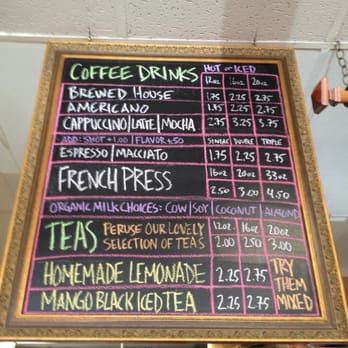 COFFEE DRINKS HOT or ICED
12oz 16oz 20oz
BREWED HOUSE 1.75 2.25 2.75
AMERICANO 1.75 2.25 2.75
CAPPUCCINO|LATTE|MOCHA 2.75 3.25 3.75
ADD: SHOT +1.00 | FLAVOR +.50 SINGLE DOUBLE TRIPLE
ESPRESSO|MACCIATO 1.75 2.25 2.75
FRENCH PRESS 16oz 20oz 33oz
2.50 3.00 4.50
ORGANIC MILK CHOICES: COW|SOY|COCONUT|ALMOND
TEAS PERUSE OUR LOVELY SELECTION OF TEAS 12oz 16oz 20oz
2.00 2.50 3.00
HOMEMADE LEMONADE 2.25 2.75
MANGO BLACK ICED TEA 2.25 2.75
TRY THEM MIXED